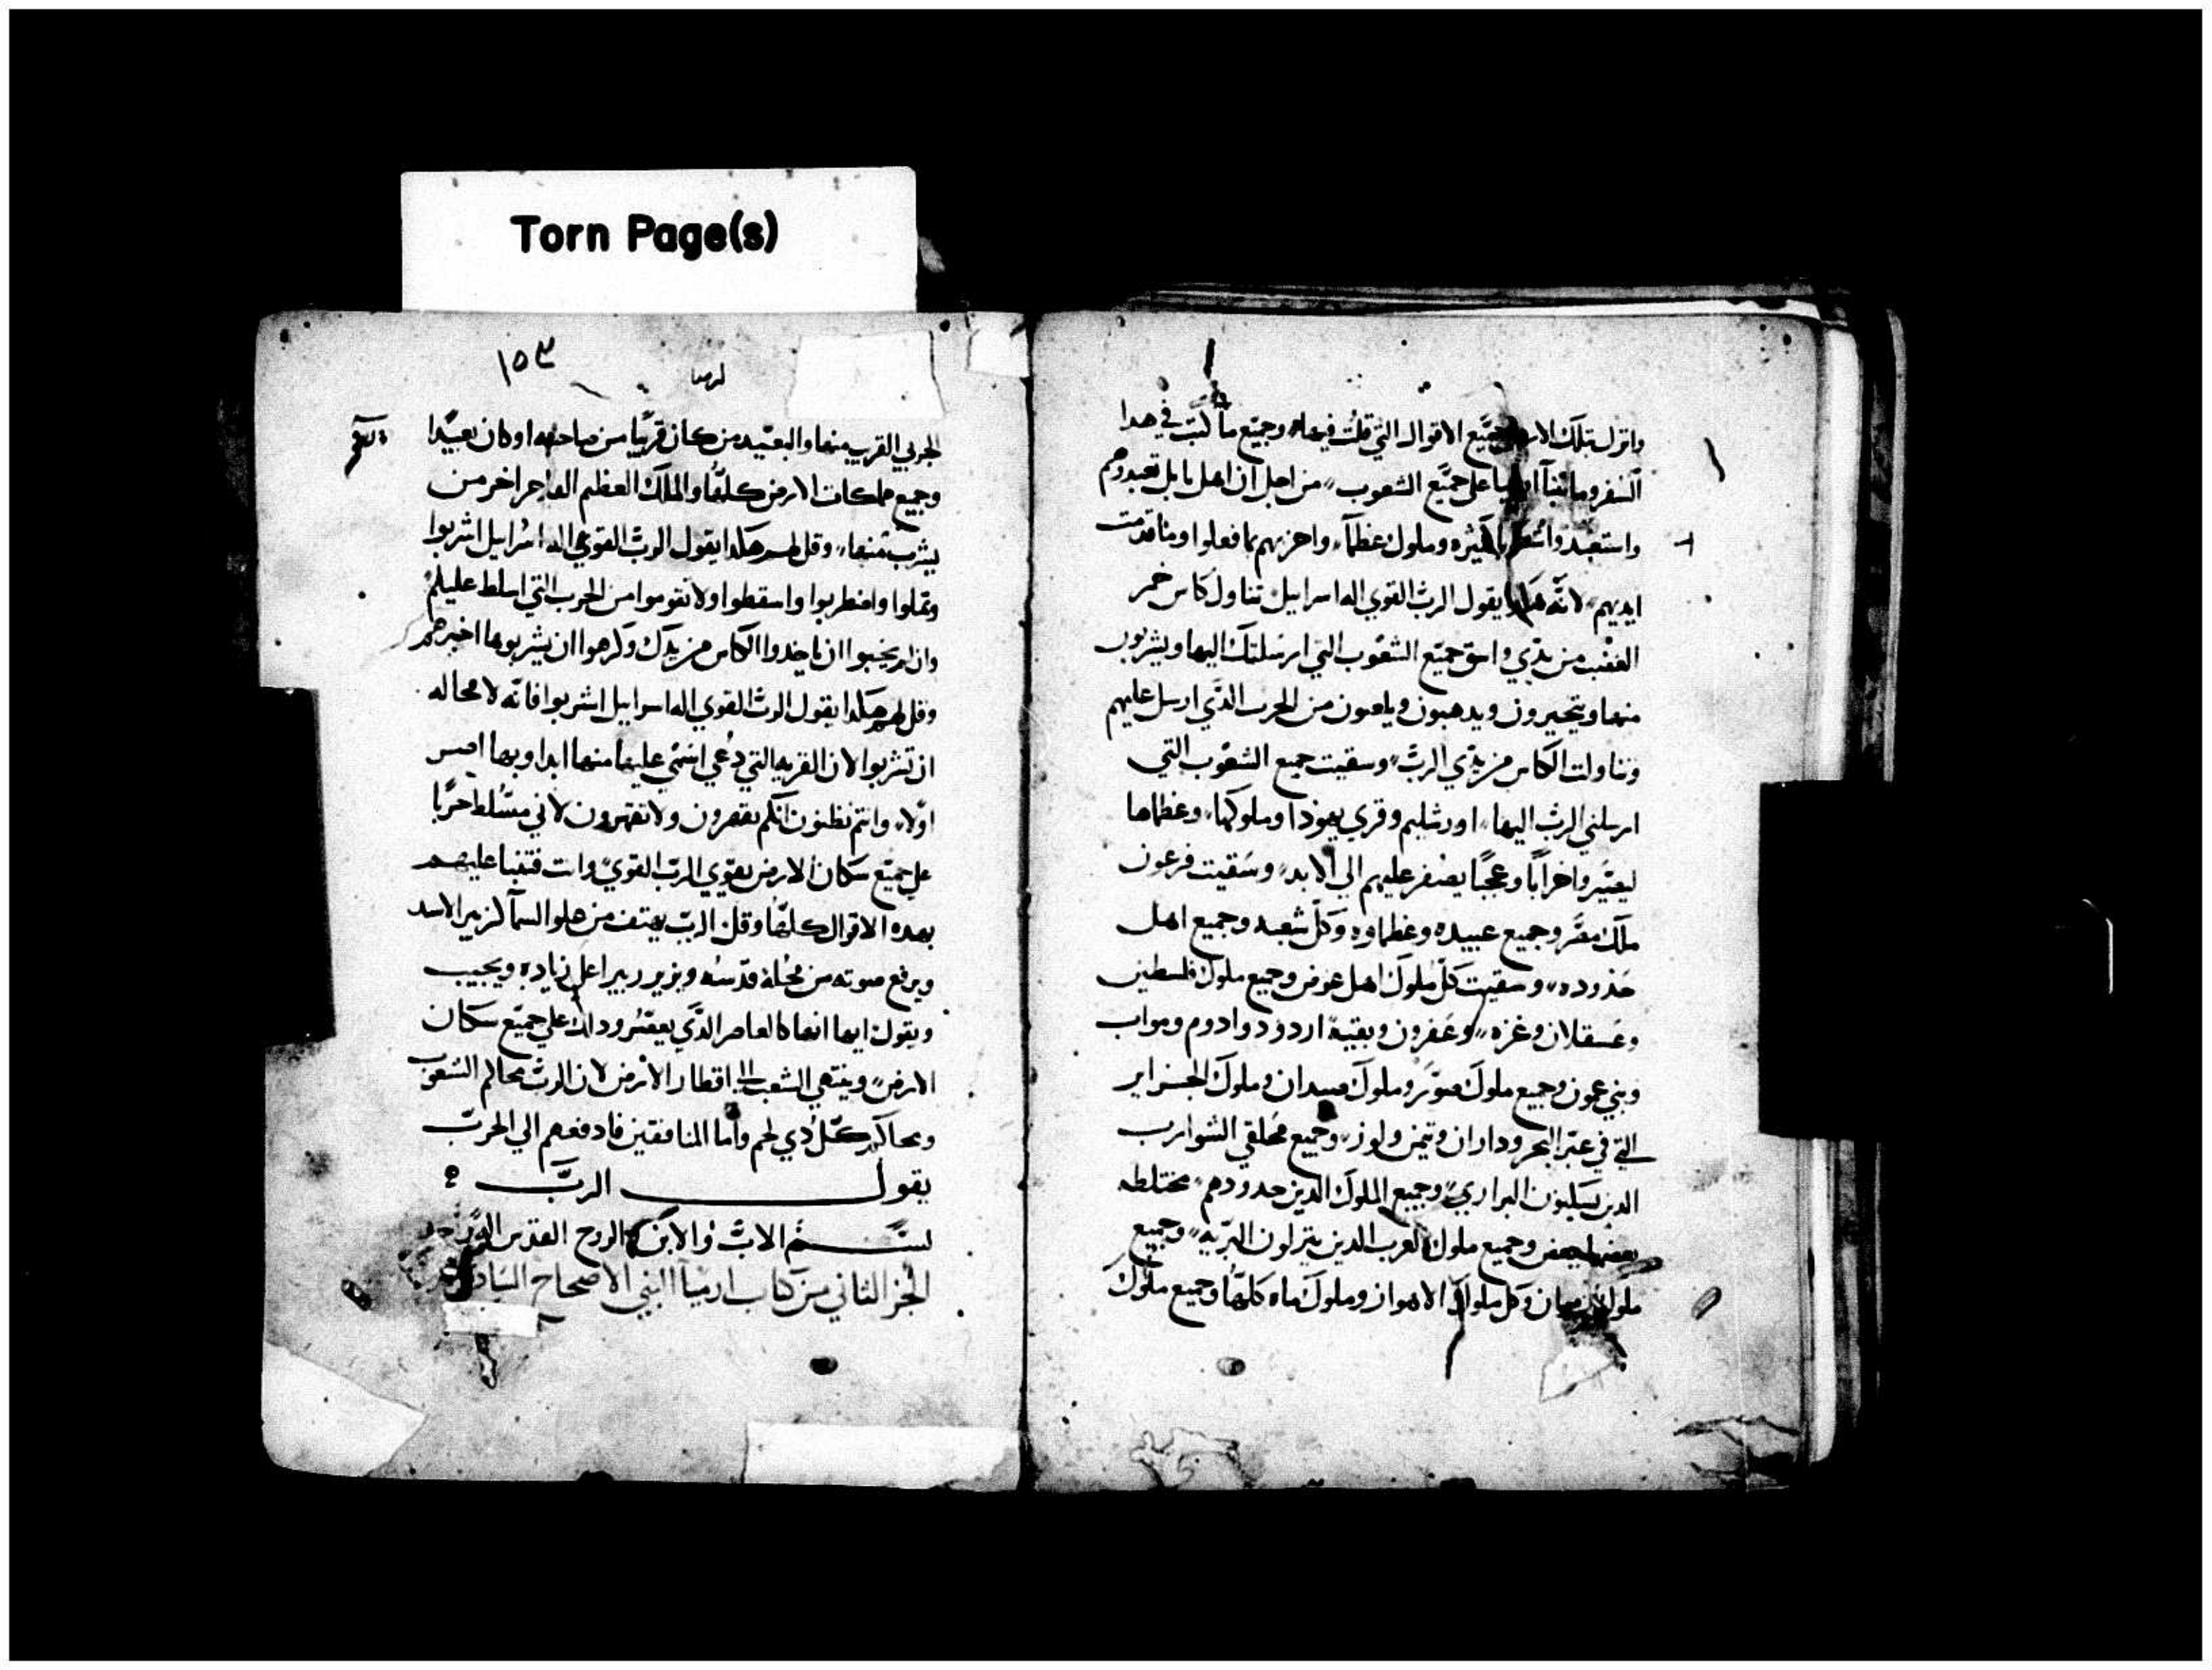 Torn Page(s)
وانزل بتلك الارض جميع الاقوال التي قلت فيها وجميع ما كتب في هدا
السفر وما تنبا ارميا على جميع الشعوب من اجل ان اهل بابل تعبدوهم
واستعبدوا شعوبا كثيره وملوك عظما واجزيهم بما فعلوا وما قدمت
ايديهم لانه هكدا يقول الرب القوي اله اسراييل تناول كاس خمر
الغضب من يدي واسق جميع الشعوب التي ارسلتك اليها ويشربون
منها ويتحيرون ويدهبون من الحرب الدي ارسل عليهم
وتناولت الكاس من يدي الرب وسقيت جميع الشعوب التي
ارسلني الرب اليها اورشليم وقري يهودا وملوكها وعظماها
ليصيروا خرابا وعجبا يصفر عليهم الي الابد وسقيت فرعون
ملك مصر وجميع عبيده وعظماوه وكل شعبه وجميع اهل
حدوده وسقيت كل ملوك اهل عوض وجميع ملوك فلسطين
وعسقلان وغزه وعفرون وبقية اردود وادوم ومواب
وبني عمون وجميع ملوك صور وملوك صيدان وملوك الجزاير
التي في عبر البحر وداران وتيمن ولوز وجميع محلقي الشوارب
الدين يسكنون البراري وجميع الملوك الدين حدودهم مختلطه
بعضها ببعض وجميع ملوك العرب الدين ينزلون البريه وجميع
ملوك وكل ملوك الاهواز وملوك ماه كلها وجميع ملوك
١٥٣
ارميا
الجربي القريب منها والبعيد من كان قريبا من صاحبه او كان بعيدا
وجميع مملكات الارض كلها والملك العظيم الفاجر اخر من
يشرب منها وقل لهم هكدا يقول الرب القوي اله اسراييل اشربوا
وتملوا واضطربوا واسقطوا ولا تقوموا من الحرب التي اسلط عليكم
وان لم يحبوا ان ياخدوا الكاس من يدك وكرهوا ان يشربوها اخبرهم
وقل لهم هكدا يقول الرب القوي اله اسراييل اشربوا فانه لا محاله
ان تشربوا لان القريه التي دعي اسمي عليها منها ابدا وبها
اولا وانتم تظنون انكم تقهرون ولا تقهرون لاني مسلط حربا
على جميع سكان الارض بقوي الرب القوي وانت فتنبا عليهم
بهده الاقوال كلها وقل الرب يهتف من علو السما كزير الاسد
ويرفع صوته من محلة قدسه ويزير زييرا على دياره ويجيب
ويقول كالعاصر الدي يعصر ودلك على جميع سكان
الارض وينتهي الشعب الي اقطار الارض لان الرب محاكم الشعوب
ومحاكم كل دي لحم واما المنافقين فادفعهم الي الحرب
يقول الرب
بسم الاب والابن والروح القدس
الجز الثاني من كتاب ارميا النبي الاصحاح السادس